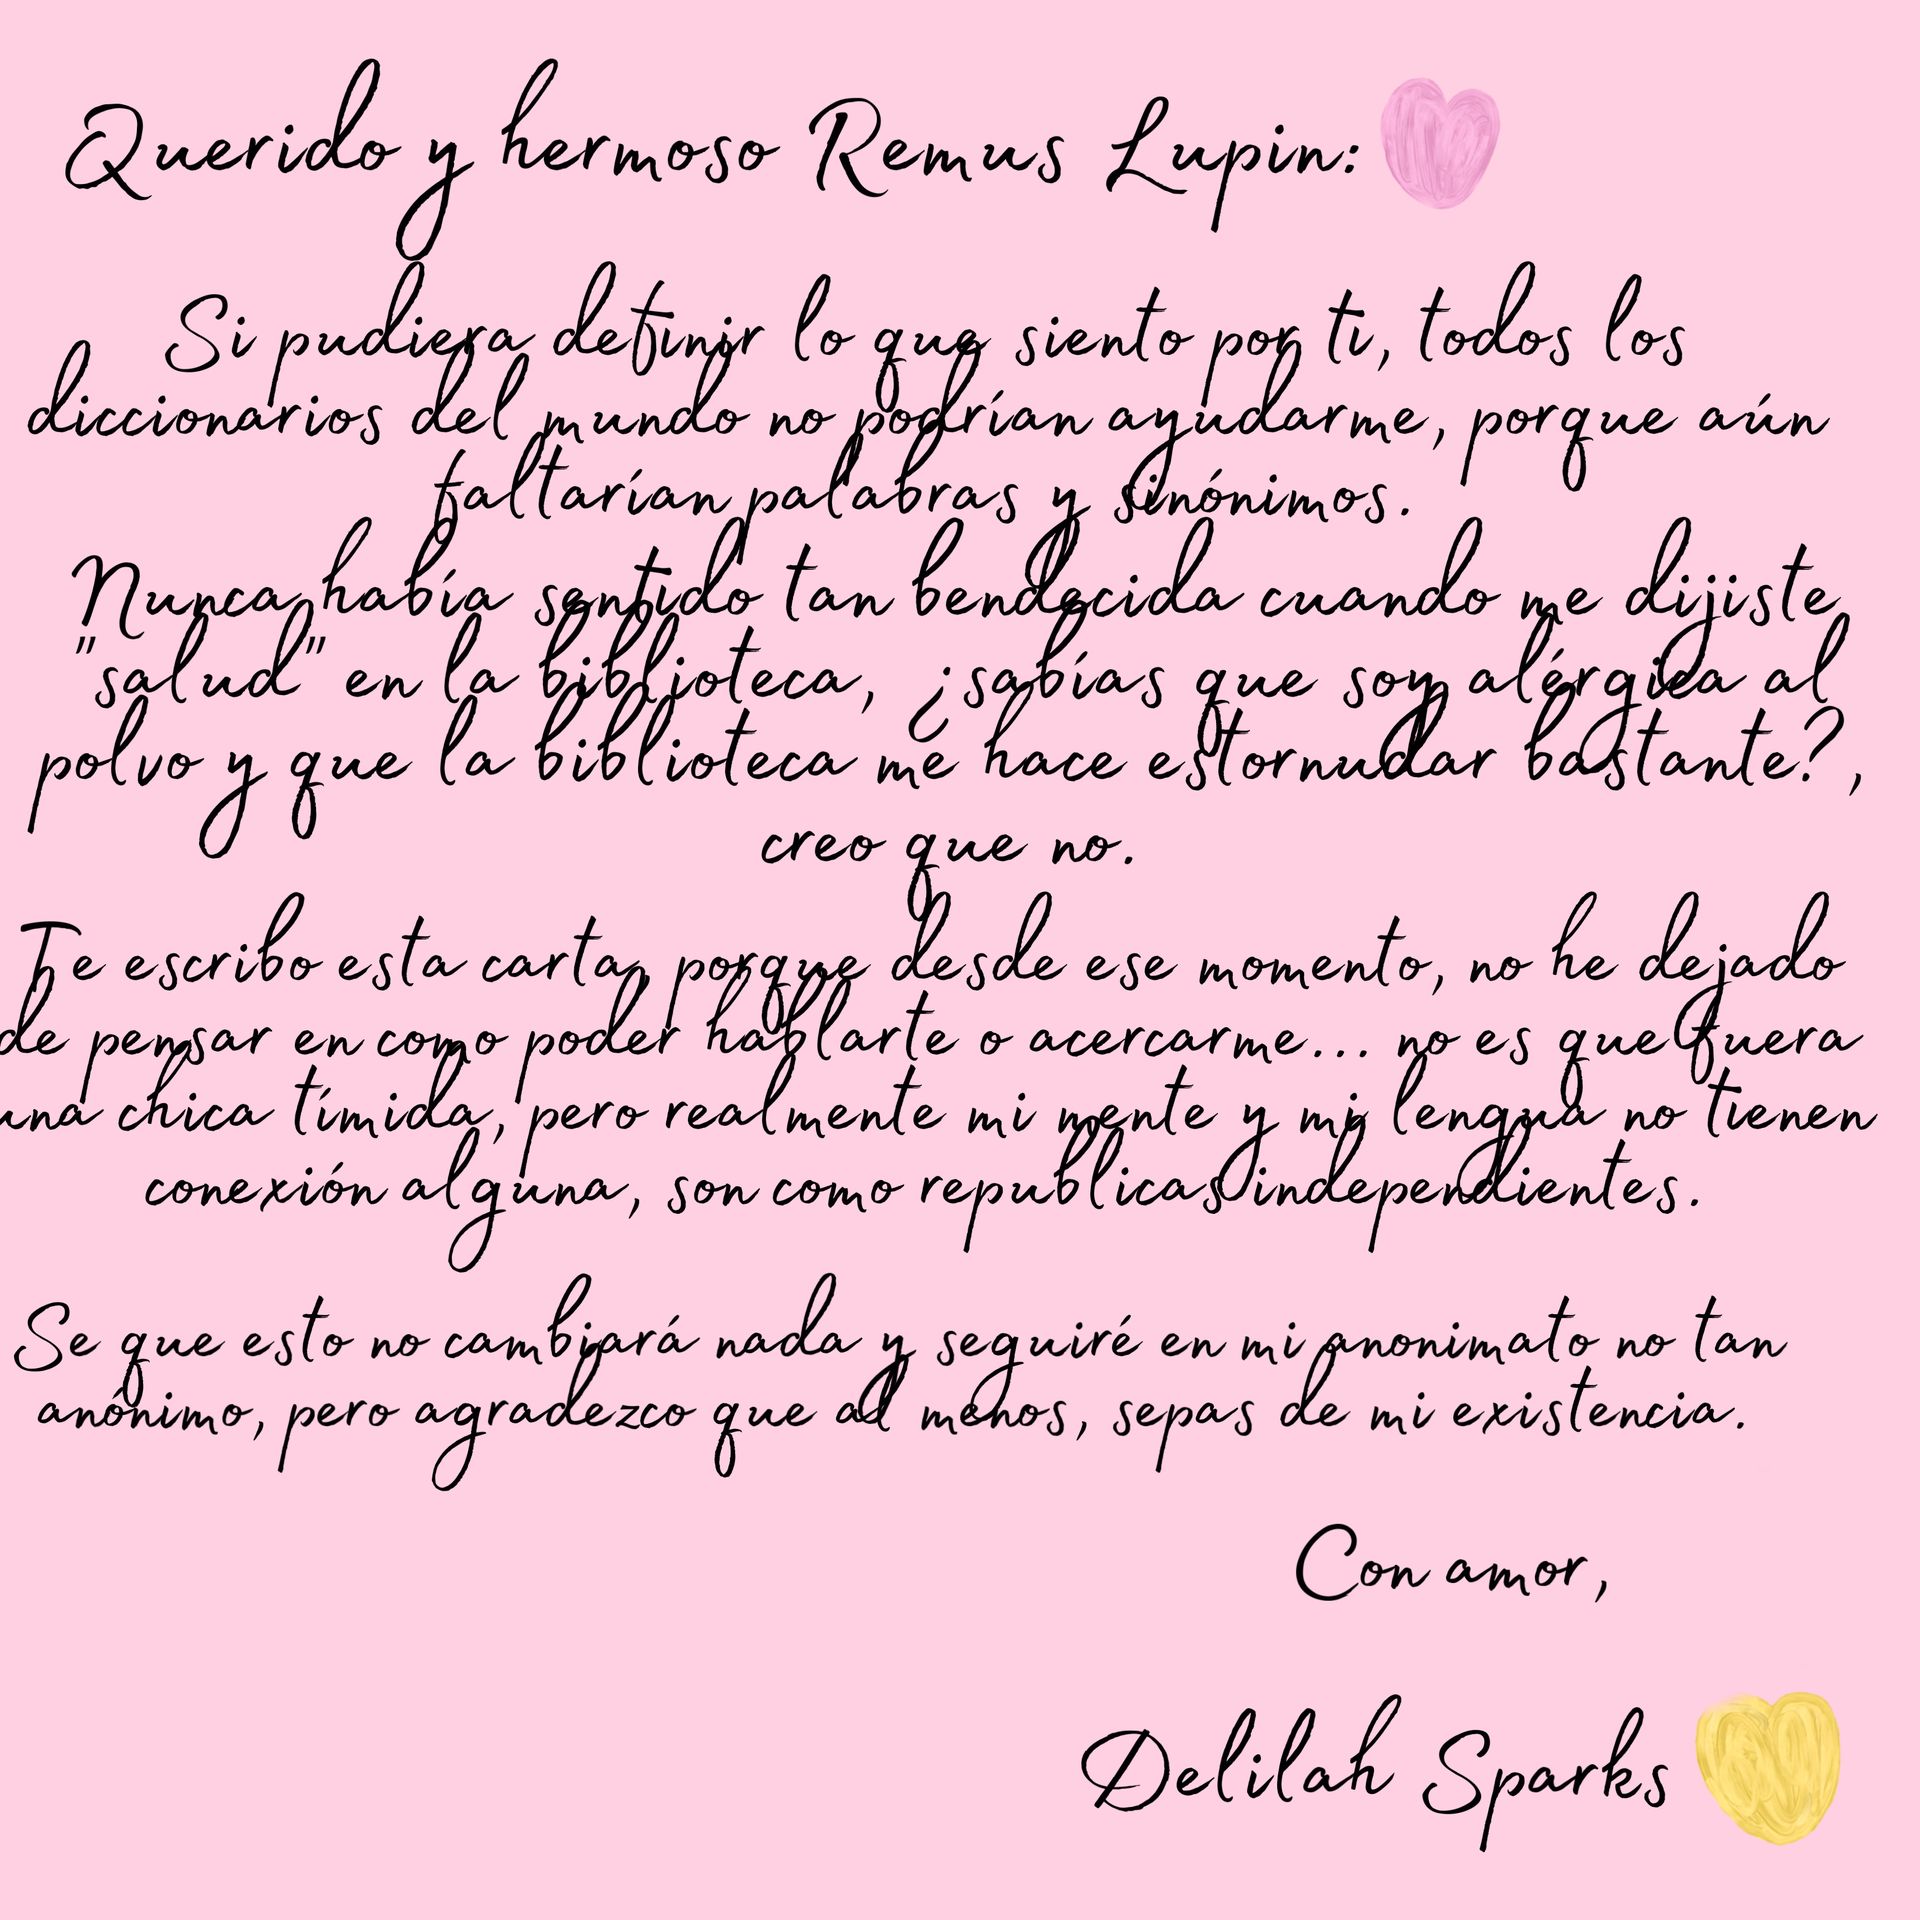 Querido y hermoso Remus Lupin:
Si pudiera definir lo que siento por ti, todos los
diccionarios del mundo no podrían ayudarme, porque aún
faltarían palabras y sinónimos.
Nunca había sentido tan bendecida cuando me dijiste
"salud" en la biblioteca, ¿sabías que soy alérgica al
polvo y que la biblioteca me hace estornudar bastante?,
creo que no.
Te escribo esta carta, porque desde ese momento, no he dejado
de pensar en como poder hablarte o acercarme... no es que fuera
una chica tímida, pero realmente mi mente y mi lengua no tienen
conexión alguna, son como republicas independientes.
Se que esto no cambiará nada y seguiré en mi anonimato no tan
anónimo, pero agradezco que al menos, sepas de mi existencia.
Con amor,
Delilah Sparks